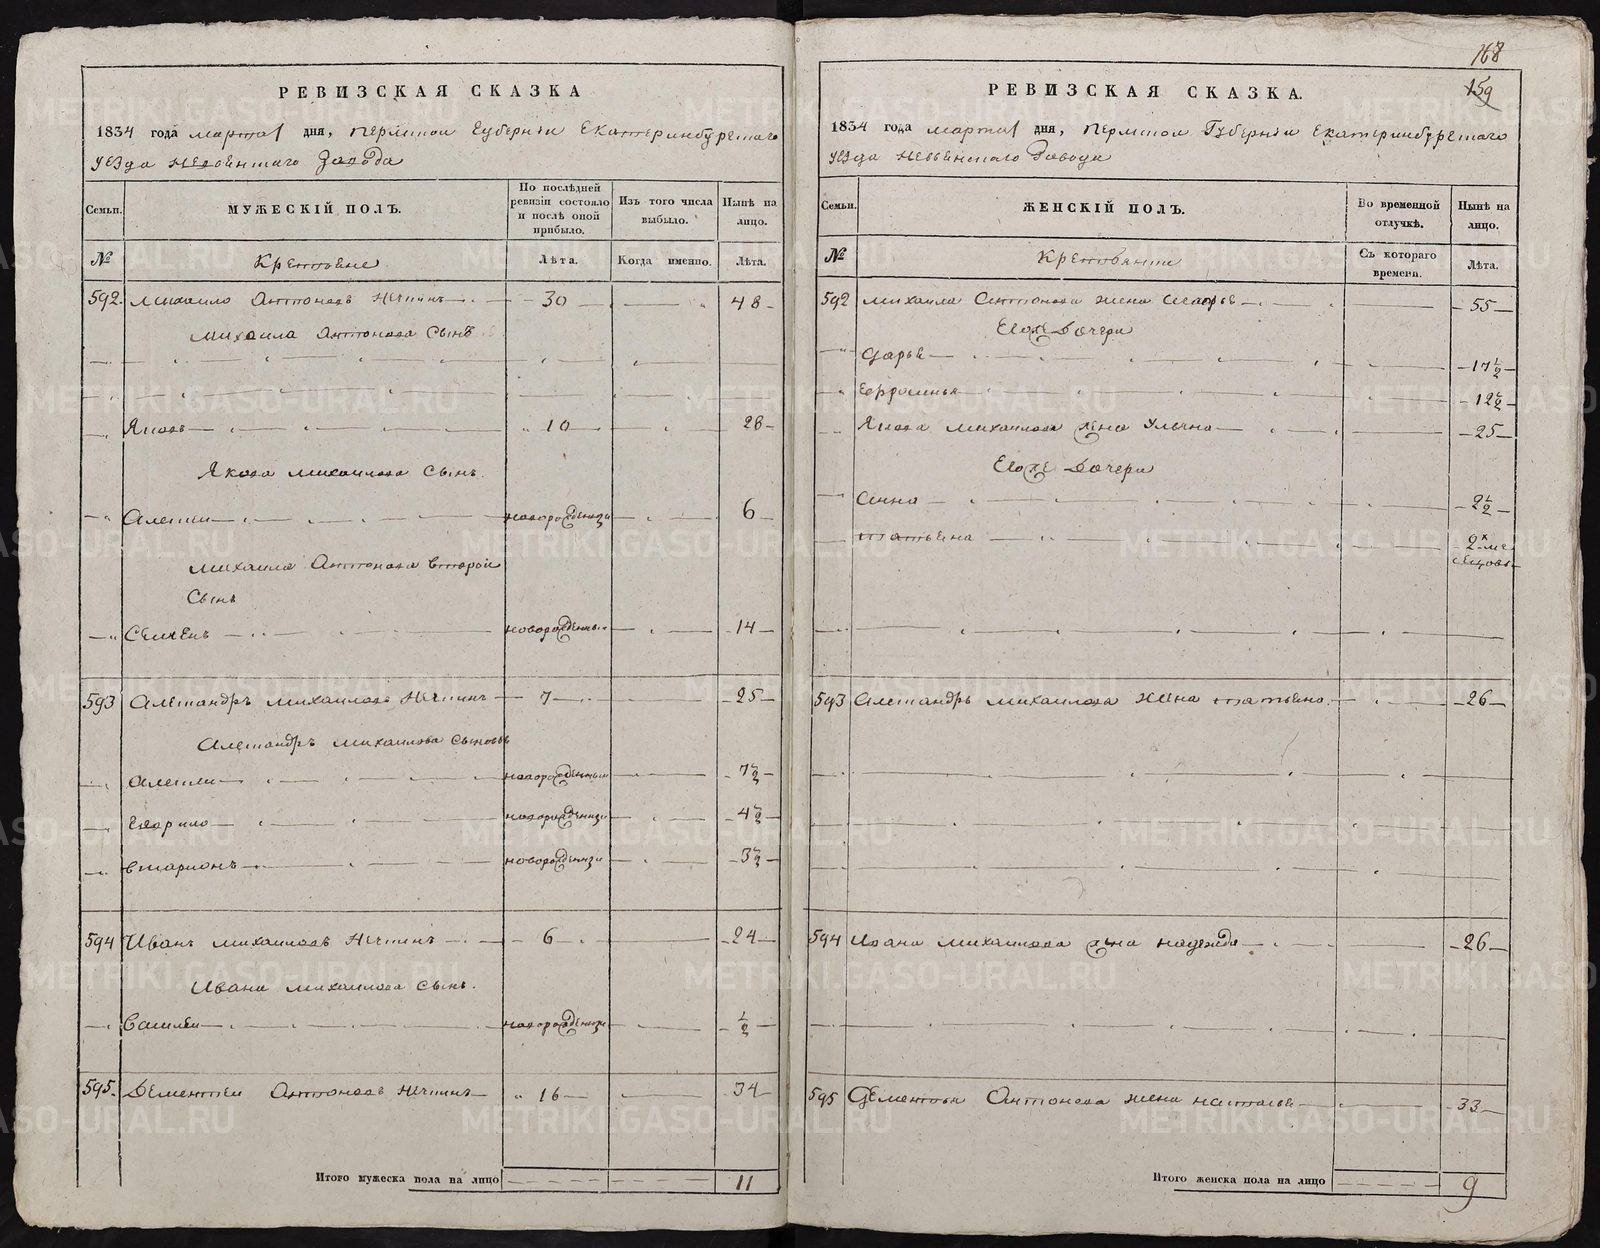 РЕВИЗСКАЯ СКАЗКА
1834 года марта 1 дня, Пермской Губернiи Екатеринбургскаго
уезда Невьянскаго Завода
Семьи.
МУЖЕСКIЙ ПОЛЪ.
По послѣдней ревизiи состояло и послѣ оной прибыло.
Изъ того числа выбыло.
Нынѣ на лицо.
№
Крестьяне
Лѣта.
Когда именно.
Лѣта.
592. Михаило Антоновъ 30 48
Михаила Антонова Сынъ
Яковъ 10 28
Якова Михаилова Сынъ.
Алексеи новорожденныи 6
Михаила Антонова второй
Сынъ
Семенъ новорожденныи 14
593 Александръ Михаиловъ 7 25
Александръ Михаилова Сыновья
Алексеи новорожденныи 7½
Гаврило новорожденныи 4½
новорожденныи 3½
594 Иванъ Михаиловъ 6 24
Ивана Михаилова Сынъ.
Василеи новорожденныи ½
595. Дементеи Антоновъ 16 34
Итого мужеска пола на лицо 11
168
159
РЕВИЗСКАЯ СКАЗКА.
1834 года марта 1 дня, Пермской Губернiи Екатеринбургскаго
уезда Невьянскаго Завода
Семьи.
ЖЕНСКIЙ ПОЛЪ.
Во временной отлучкѣ.
Нынѣ на лицо.
№
Крестьянки
Съ котораго времени.
Лѣта.
592 Михаила Антонова жена 55
Ево же Дочери
Дарья 17½
12½
Якова Михаилова жена Ульяна 25
Ево же Дочери
Анна 2½
Татьяна 2х ме
сецовъ
593 Александръ Михаилова жена Татьяна 26
594 Ивана Михаилова жена Надежда 26
595 Дементья Антонова жена Настасья 33
Итого женска пола на лицо 9
METRIKI.GASO-URAL.RU